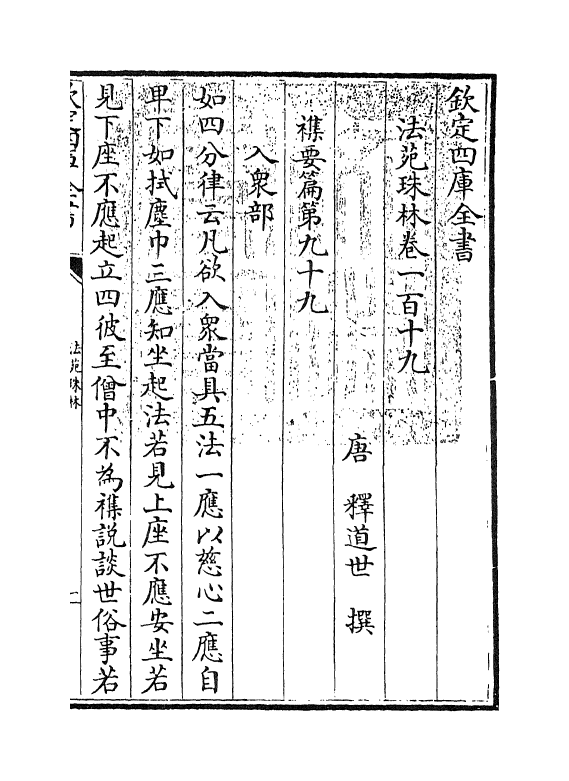 欽定四庫全書
法苑珠林卷一百十九
唐 釋道世 撰
襍要篇第九十九
入衆部
如四分律云凡欲入衆當具五法一應以慈心二應自
卑下如拭塵巾三應知坐起法若見上座不應安坐若
見下座不應起立四彼至僧中不為襍說談世俗事若
欽定四庫全書
法苑珠林
一